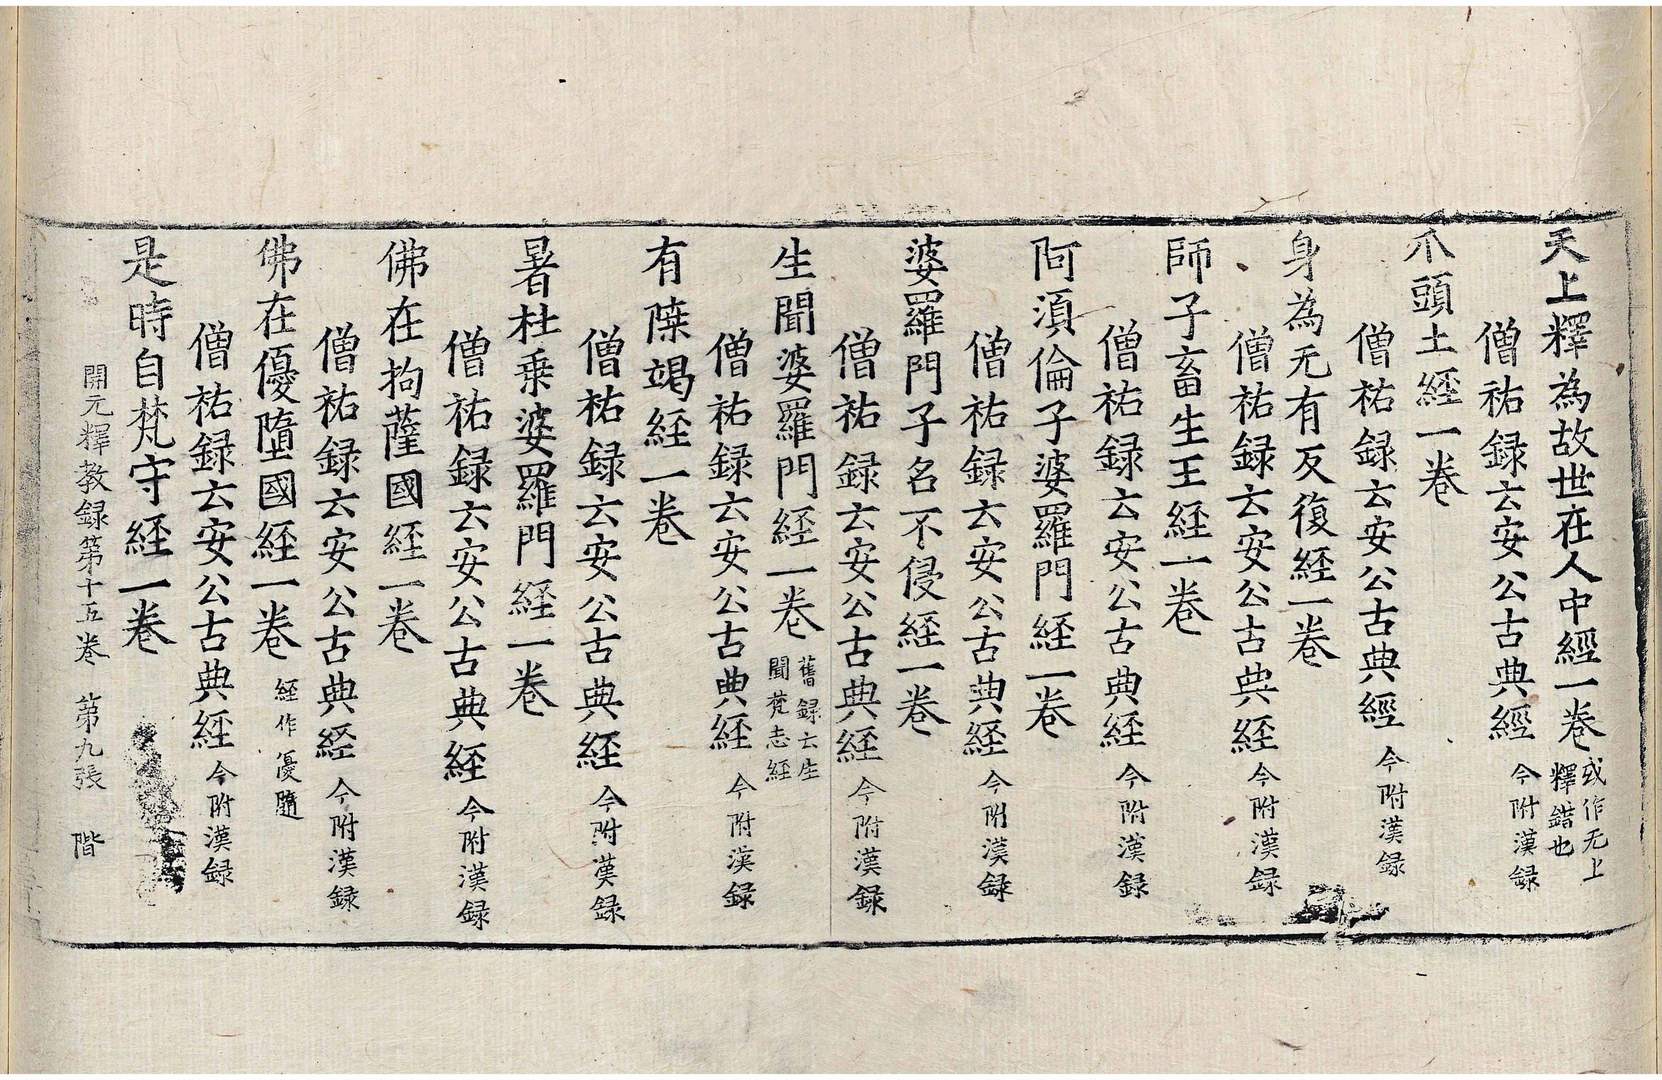 天上釋為故世在人中經一卷 或作无上釋錯也
僧祐録云安公古典經 今附漢録
爪頭土經一卷
僧祐録云安公古典經 今附漢録
身為无有反復經一卷
僧祐録云安公古典經 今附漢録
師子畜生王經一卷
僧祐録云安公古典經 今附漢録
阿湏倫子婆羅門經一卷
僧祐録云安公古典經 今附漢録
婆羅門子名不侵經一卷
僧祐録云安公古典經 今附漢録
生聞婆羅門經一卷 舊録云生聞梵志經
僧祐録云安公古典經 今附漢録
有𨻶竭經一卷
僧祐録云安公古典經 今附漢録
暑杜乗婆羅門經一卷
僧祐録云安公古典經 今附漢録
佛在拘薩國經一卷
僧祐録云安公古典經 今附漢録
佛在優墮國經一卷 經作優隨
僧祐録云安公古典經 今附漢録
是時自梵守經一卷
開元釋教録第十五卷 第九張 階